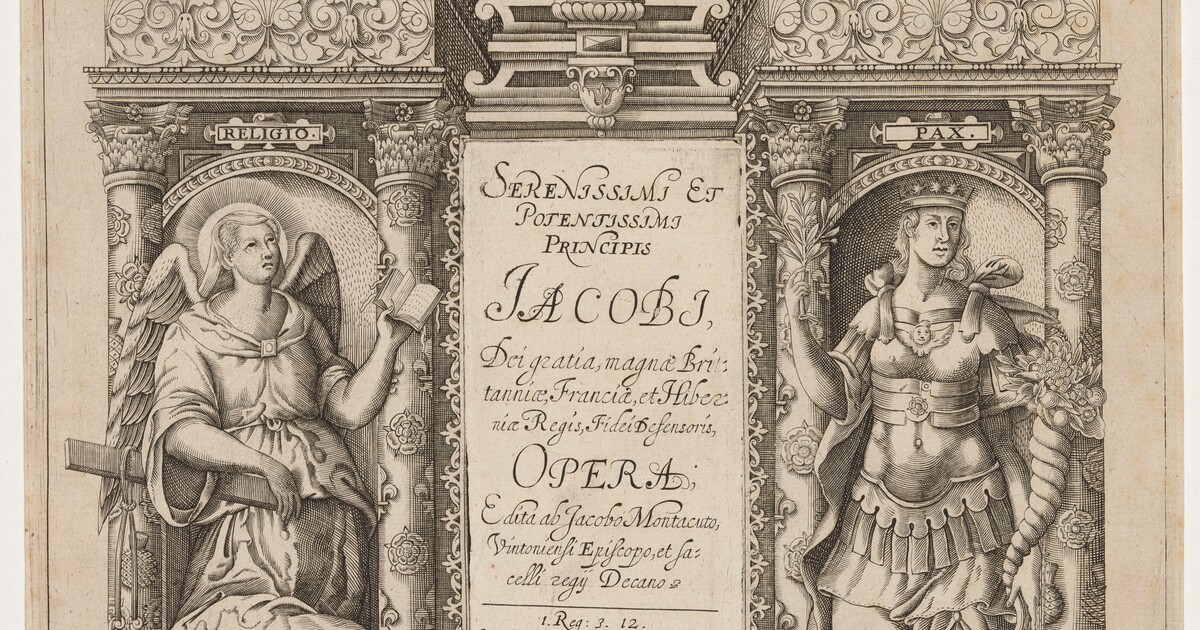 RELIGIO.
PAX.
SERENISSIMI ET
POTENTISSIMI
PRINCIPIS
JACOBI,
Dei gratia, magnæ Bri-
tanniæ, Franciæ, et Hiber-
niæ Regis, Fidei Defensoris,
OPERA,
Edita ab Jacobo Montacuto,
Vintoniensi Episcopo, et sa-
celli regij Decano
1. Reg: 3. 12.